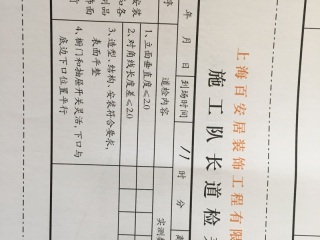 上海百安居装饰工程有限
施工队长道检
年 月 日 到场时间 11 时 分
序 道检内容 实测
安装 1、立面垂直度≤2.0
和各 2、对角线长度差≤2.0
制品 3、造型、结构、安装符合要求，
饰面 表面平整
4、橱门和抽屉开关灵活，下口与
底边下口位置平行